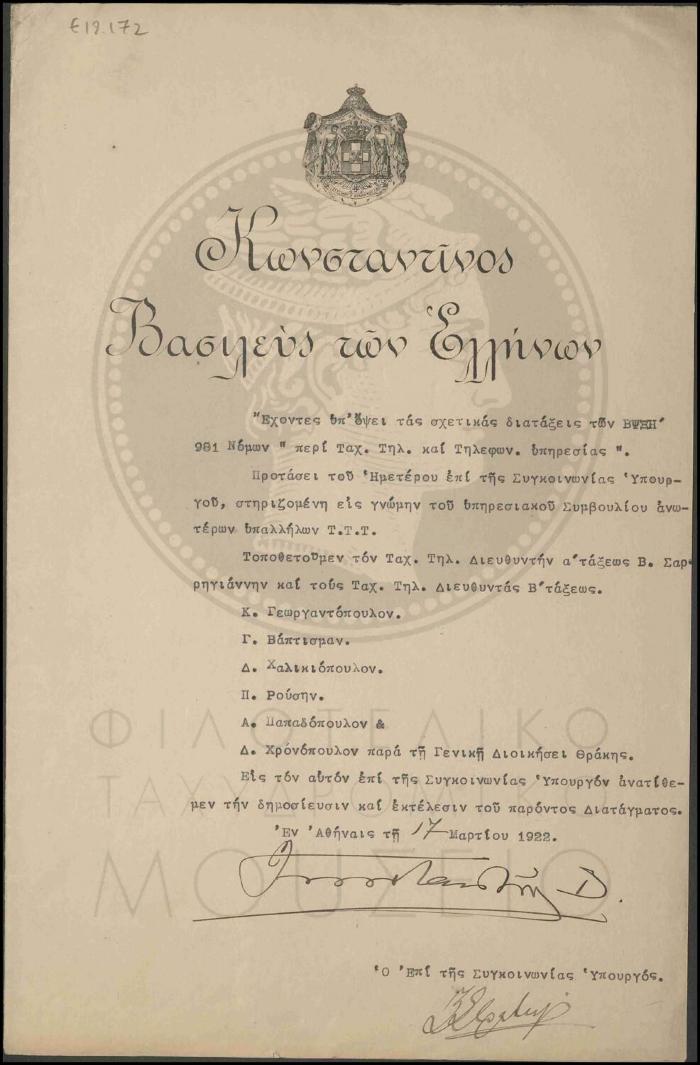 Ε19.172
Κωνσταντῖνος
Βασιλεὺς τῶν Ἑλλήνων
Ἔχοντες ὑπ' ὄψει τάς σχετικάς διατάξεις τῶν ΒΨΞΗ'
981 Νόμων " περί Ταχ. Τηλ. καί Τηλεφων. ὑπηρεσίας ".
Προτάσει τοῦ Ἡμετέρου ἐπί τῆς Συγκοινωνίας Ὑπουρ-
γοῦ, στηριζομένη εἰς γνώμην τοῦ ὑπηρεσιακοῦ Συμβουλίου ἀνω-
τέρων ὑπαλλήλων Τ.Τ.Τ.
Τοποθετοῦμεν τόν Ταχ. Τηλ. Διευθυντήν α'τάξεως Β. Σαρ-
ρηγιάννην καί τούς Ταχ. Τηλ. Διευθυντάς Β'τάξεως.
Κ. Γεωργαντόπουλον.
Γ. Βάπτισμαν.
Δ. Χαλικιόπουλον.
Π. Ρούσην.
Α. Παπαδόπουλον &
Δ. Χρόνόπουλον παρά τῇ Γενικῇ Διοικήσει Θράκης.
Εἰς τόν αὐτόν ἐπί τῆς Συγκοινωνίας Ὑπουργόν ἀνατίθε-
μεν τήν δημοσίευσιν καί ἐκτέλεσιν τοῦ παρόντος Διατάγματος.
Ἐν Ἀθήναις τῇ 17 Μαρτίου 1922.
Ὁ Ἐπί τῆς Συγκοινωνίας Ὑπουργός.
ΦΙΛΟΤΕΛΙΚΟ
ΤΑΧΥΔΡΟΜΙΚΟ
ΜΟΥΣΕΙΟ